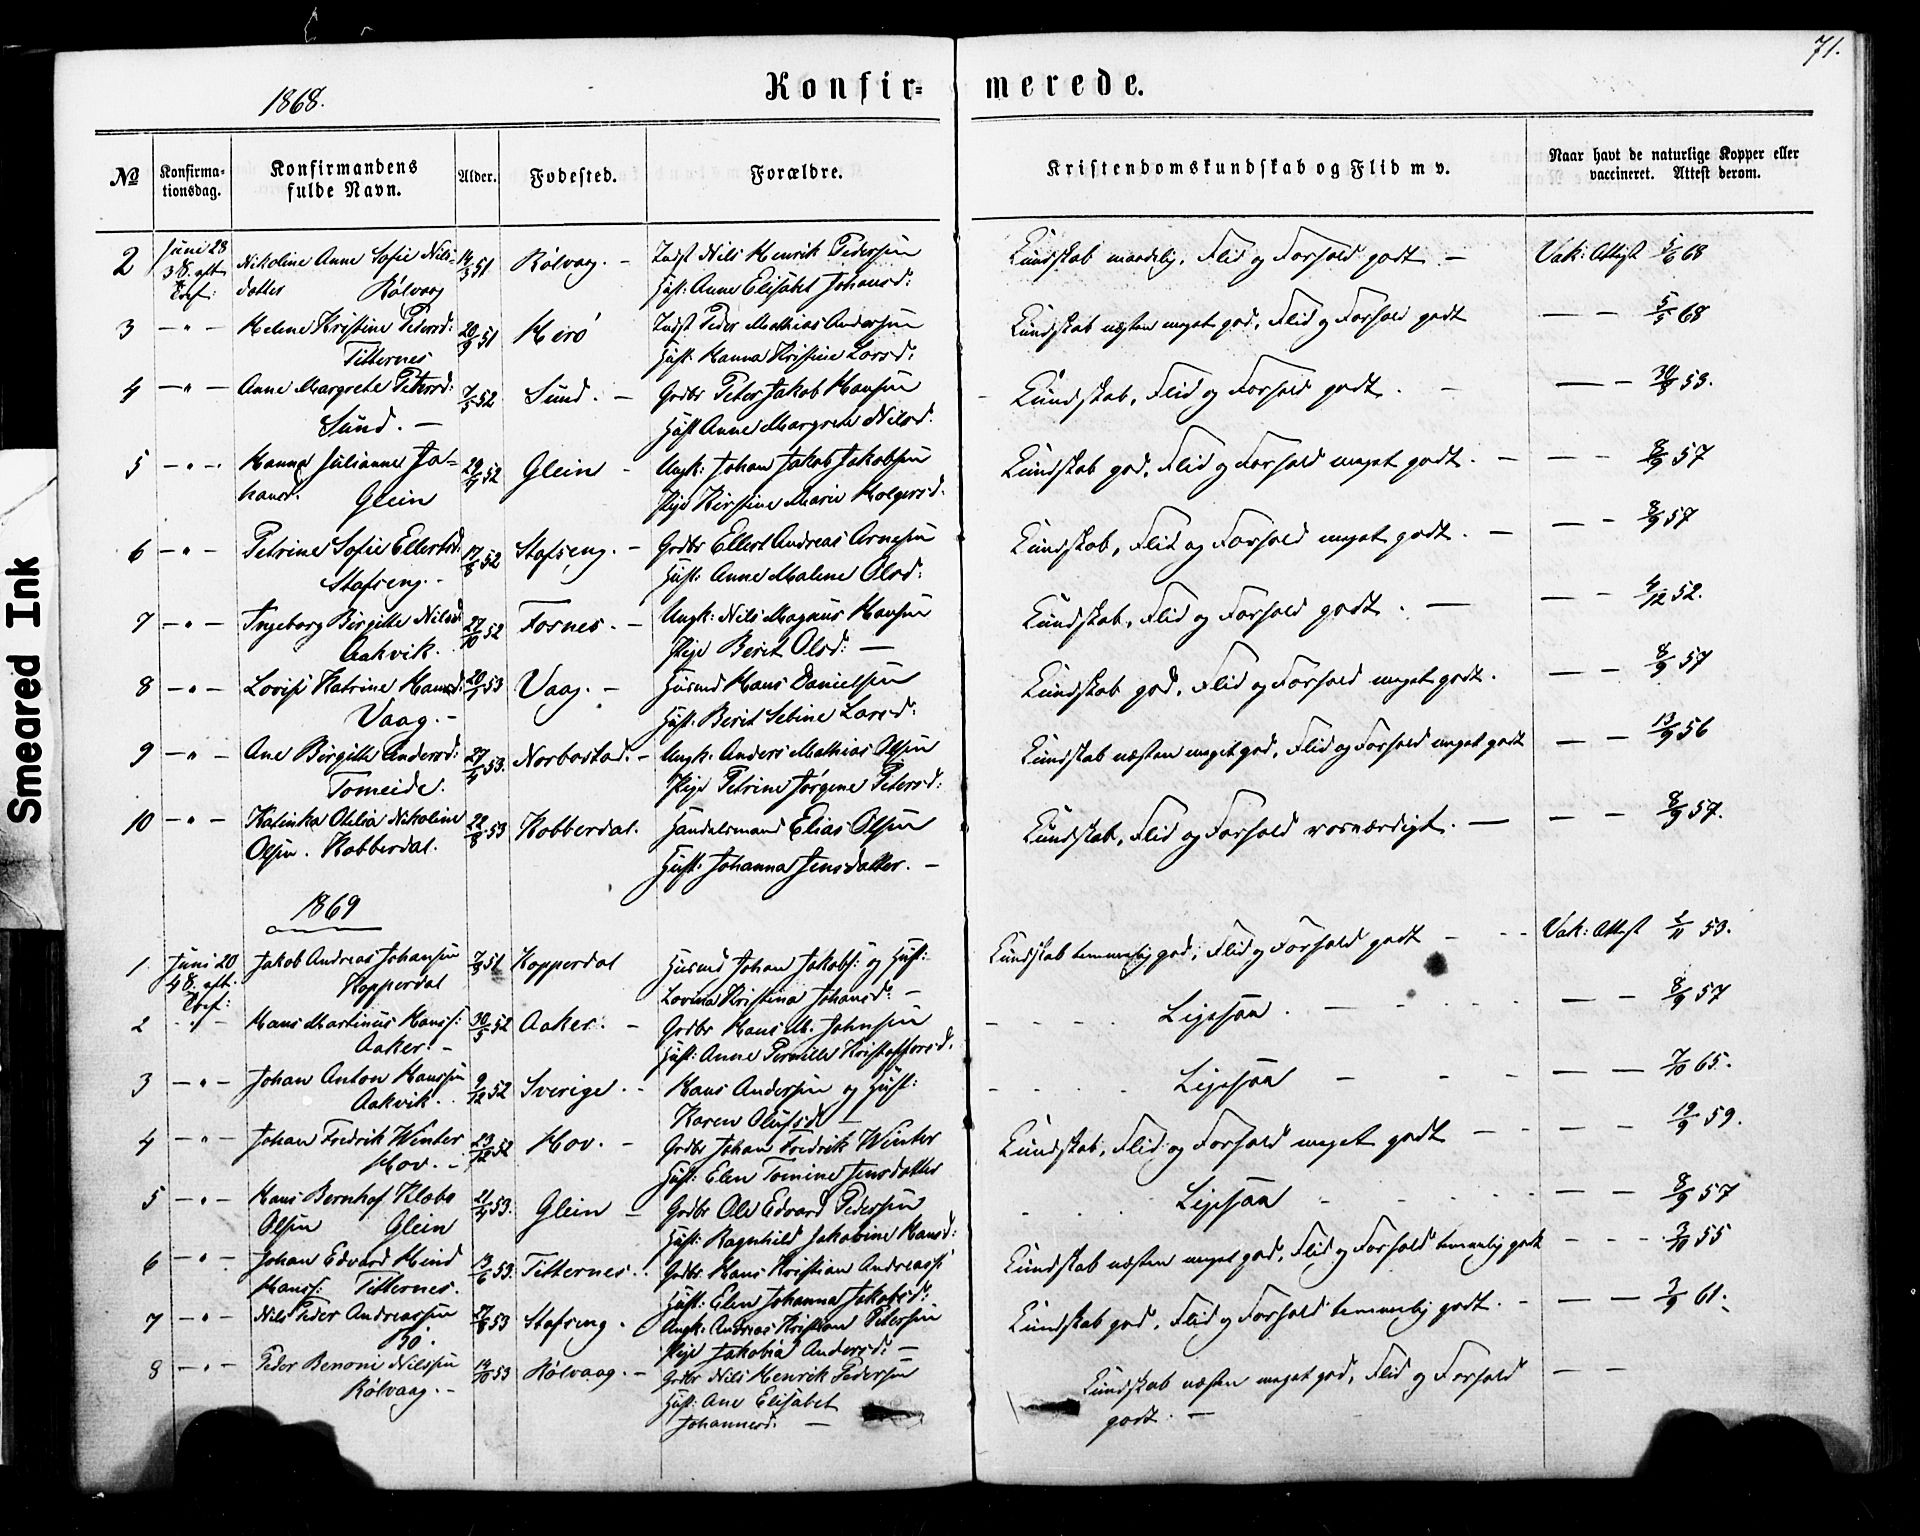 71.
1868.
Konfir= merede.
№ Konfirma-tionsdag. Konfirmandens fulde Navn. Alder. Fødested. Forældre. Kristendomskundskab og Flid m v. Naar havt de naturlige Kopper eller vaccineret. Attest derom.
2 Juni 28 Nikoline Anne Sofie Nils- 14/3 51 Rølvaag. - Indst Nils Henrik Pedersen Kundskab maadelig, Flid og Forhold godt - Vak: Attest 5/6 68
3 S. eft. Tref: datter Rølvaag Hust: Anne Elisabet Johansd:
3 - " - Helene Kristine Pedersd: 20/9 51 Herø Indst Peder Mathias Andersen Kundskab næsten meget god, Flid og Forhold godt - - 5/5 68
Titternes Hust: Hanna Kristine Larsd:
4 - " - Anne Margrete Petersd: 7/5 52 Sund. - Grdbr Peter Jakob Hansen Kundskab, Flid og Forhold godt. - - - 30/8 53.
Sund. - Hust Anne Margrete Nilsd.
5 - " - Hanna Julianne Jo- 29/4 52 Glein - Ungk: Johan Jakob Jakobsen Kundskab god, Flid og Forhold meget godt. - - - 8/9 57
hansd. Glein Pige Kirstine Marie Holgersd.
6 - " - Petrine Sofie Ellertsd: 17/8 52 Stafseng. - Grdbr Ellert Andreas Arnesen Kundskab, Flid og Forhold meget godt. - - - 8/9 57
Stafseng. - Hust: Anne Malene Olsd:
7 - " - Ingeborg Birgitte Nilsd 27/10 52 Fosnes. - Ungk: Nils Magnus Hansen Kundskab, Flid og Forhold godt. - - - 4/12 52.
Aakvik. Pige Berit Olsd: -
8 - " - Lovise Katrine Hansd: 20/1 53 Vaag. - Husmd Hans Danielsen Kundskab god, Flid og Forhold meget godt. - - 8/9 57
Vaag. - Hust: Berit Sebine Larsd:
9 - " - Ane Birgitte Andersd: 27/4 53. Norbostad. - Ungk. Anders Mathias Olsen Kundskab næsten meget god, Flid og Forhold meget godt - - 13/9 56
Tomeide. Pige Petrine Jørgine Petersd:
10 - " - Katinka Otelia Nikoline 22/8 53 Kobberdal. Handelsmand Elias Olsen Kundskab, Flid og Forhold rosværdigt. - - - 8/9 57.
Olsen. Kobberdal. Hust: Johanna Jensdatter. -
1869
1. Juni 20 Jakob Andreas Johansen 7/8 51 Kopperdal Husmd Johan Jakobs: og Hust: Kundskab temmelig god, Flid og Forhold godt - - - Vak: Attest 2/11 53.
4 S. eft. Tref: Kopperdal Lovina Kristina Johansd: -
2 - " - Hans Martinus Hanss: 30/5 52 Aaker. - Grdbr Hans M. Johnsen Ligesaa. - - - 8/9 57
Aaker. - Hust: Anne Pernille Kristoffersd.
3 - " - Johan Anton Hanssen 9/12 52 Sverige. - Hans Andersen og Hust: Ligesaa - - - - 7/10 65.
Aakvik. Karen Olufsd -
4 - " - Johan Fredrik Winter 23/12 52 Hov. - Grdbr Johan Fredrik Winter Kundskab, Flid og Forhold meget godt - - - 19/9 59.
Hov. - Hust: Elen Tomine Jensdatter
5 - " - Hans Bernhof Klæbo 21/4 53. Glein - Grdbr Ole Edvard Pedersen Ligesaa - - - 8/9 57
Olsen Glein Hust: Ragnhild Jakobine Hansd:
6 - " - Johan Edvard Hind 13/6 53. Titternes. - Grdbr Hans Kristian Andreass: Kundskab næsten meget god, Flid og Forhold temmelig godt - - - 3/10 55
Hanss: Titternes. Hust: Elen Johanna Jakobsd:
7 - " - Nils Peder Andreassen 27/8 53 Stafseng. Ungk. Andreas Kristian Petersen Kundskab god, Flid og Forhold temmelig godt. - - - 3/9 61.
Rø. Pige Jakobia Andersd: -
8 - " - Peder Benoni Nilssen 14/10 53 Rølvaag. - Grdbr Nils Henrik Pedersen Kundskab næsten meget god, Flid og Forhold - -
Rølvaag. - Hust: Ane Elisabet godt. -
Johannesd. -
Smeared Ink